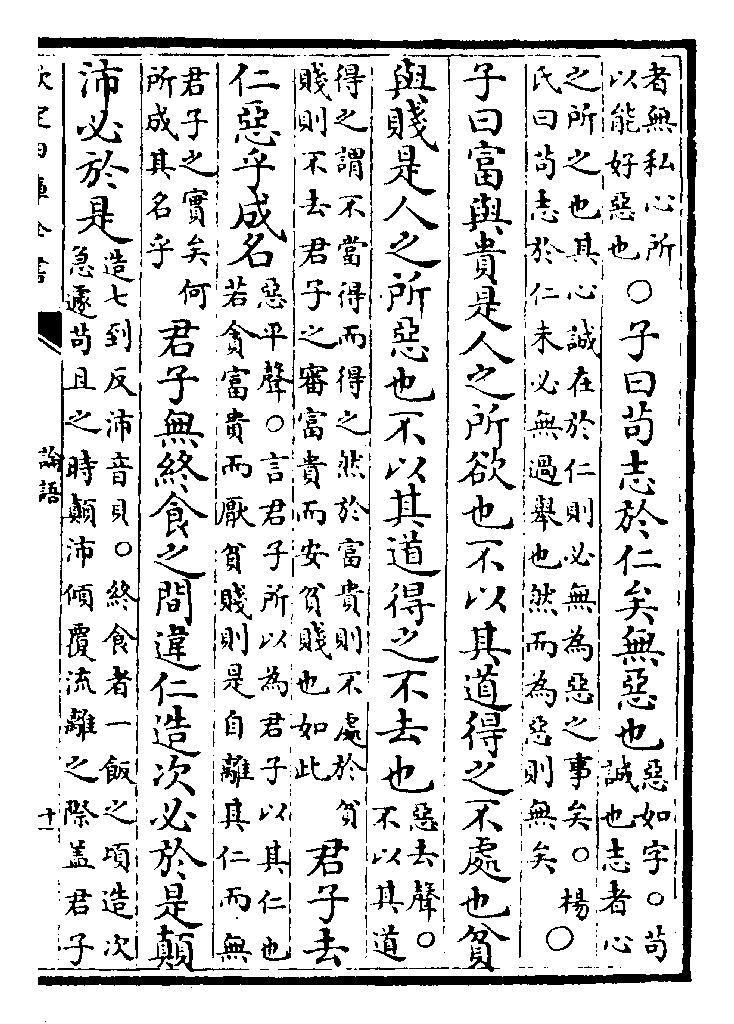 者無私心所
以能好惡也
○子曰苟志於仁矣無惡也
惡如字○苟
誠也志者心
之所之也其心誠在於仁則必無為惡之事矣○楊
氏曰苟志於仁未必無過舉也然而為惡則無矣
○
子曰富與貴是人之所欲也不以其道得之不處也貧
與賤是人之所惡也不以其道得之不去也
惡去聲○
不以其道
得之謂不當得而得之然於富貴則不處於貧
賤則不去君子之審富貴而安貧賤也如此
君子去
仁惡乎成名
惡平聲○言君子所以為君子以其仁也
若貪富貴而厭貧賤則是自離其仁而無
君子之實矣何
所成其名乎
君子無終食之間違仁造次必於是顛
沛必於是
造七到反沛音貝○終食者一飯之頃造次
急遽苟且之時顛沛傾覆流離之際盖君子
欽定四庫全書
論語
十一